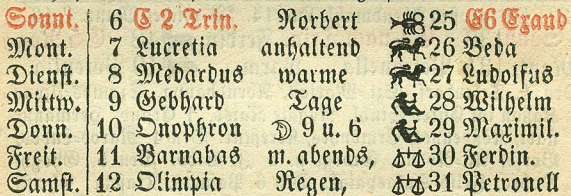 Sonnt. 6 C 2 Trin. Norbert 25 C6 Exaud
Mont. 7 Lucretia anhaltend 26 Beda
Dienst. 8 Medardus warme 27 Ludolfus
Mittw. 9 Gebhard Tage 28 Wilhelm
Donn. 10 Onophron ☽ 9 u. 6 29 Maximil.
Freit. 11 Barnabas m. abends, 30 Ferdin.
Samst. 12 Olimpia Regen, 31 Petronell